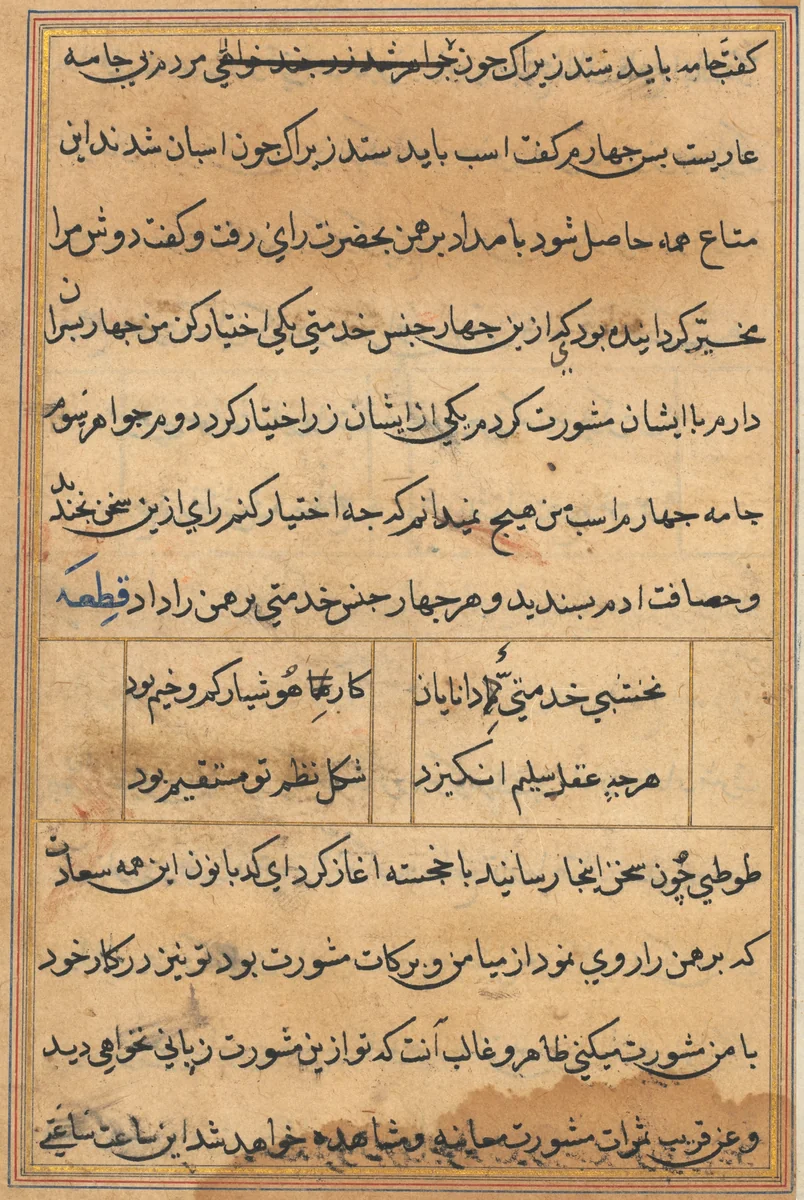 کفت جامه باید ستد زیراک جون جواهر شد زر جند خواهی مردم بی جامه
عاریست بس جهارم کفت اسب باید ستد زیراک جون اسبان شدند این
متاع همه حاصل شود بامداد برهمن بحضرت رای رفت و کفت دوش مرا
مخیّر کردانیده بودیکه ازین جهار جنس خدمتی یکی اختیار کن من جهار بسران
دارم با ایشان مشورت کردم یکی از ایشان زر اختیار کرد دوم جواهر سوم
جامه جهارم اسب من هیج نمیدانم که جه اختیار کنم رای ازین سخن بخندید
و حصافت ادم بسندید و هر جهار جنس خدمتی برهمن را داد قطعه
نخشبی خدمتیِ دانایان کار هوشیار کم وخیم بود
هرجه عقل سلیم انکیزد شکل نظم تو مستقیم بود
طوطی چون سخن اینجا رسانید با خجسته اغاز کرد ای کدبانو ن این همه سعادت
که برهمن را روی نمود از میامن و برکات مشورت بود تو نیز در کار خود
با من مشورت میکنی ظاهر و غالب آنت که تو ازین مشورت زیانی نخواهی دید
و عن قریب ثمرات مشورت معاینه و مشاهده خواهد شد این ساعت ساعتی